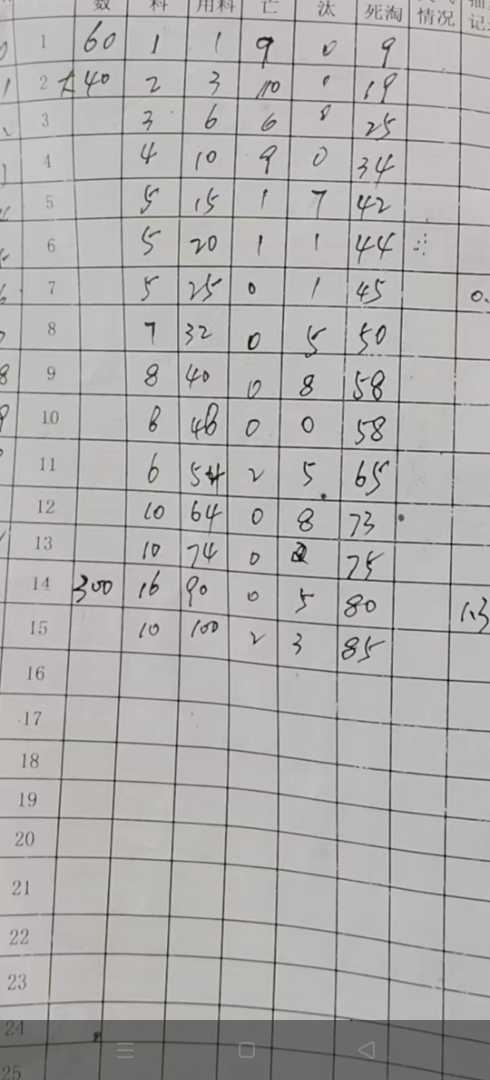 数 料 用料 亡 汰 死淘 情况
1 60 1 1 9 0 9
2 40 2 3 10 19
3 3 6 6 0 25
4 4 10 9 0 34
5 5 15 1 7 42
6 5 20 1 1 44
7 5 25 0 1 45 0.
8 7 32 0 5 50
9 8 40 0 8 58
10 6 46 0 0 58
11 6 54 2 5 65
12 10 64 0 8 73
13 10 74 0 2 75
14 300 16 90 0 5 80 1.3
15 10 100 2 3 85
16
17
18
19
20
21
22
23
24
25